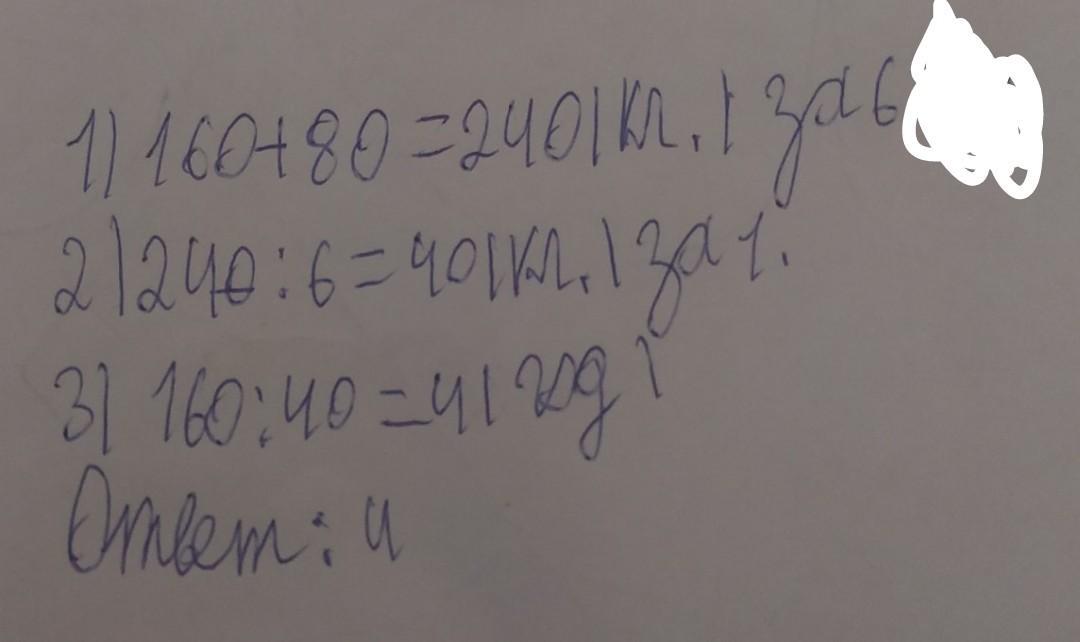 1) 160+80=240(кл.) за 6
2) 240:6=40(кл.) за 1.
3) 160:40=4(год)
Ответ: 4